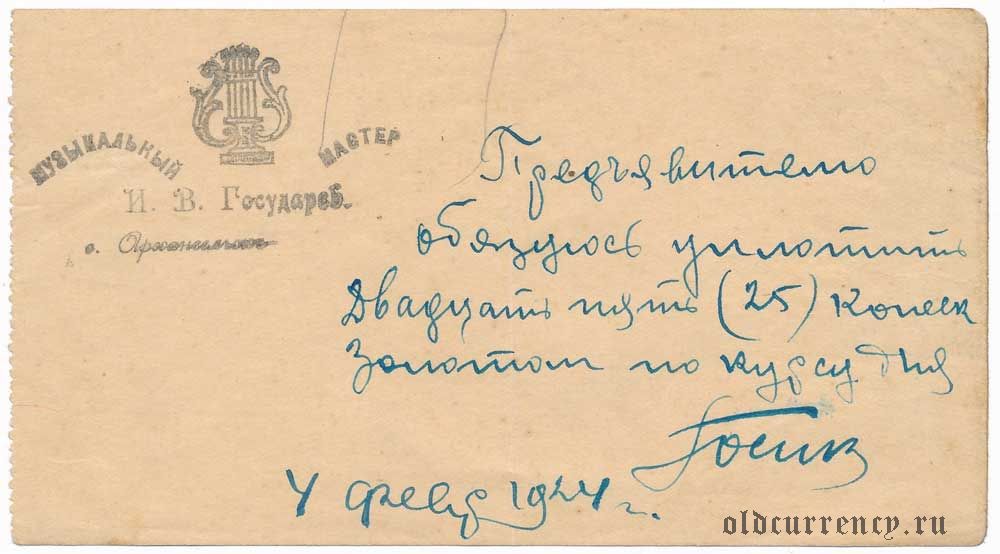 МУЗЫКАЛЬНЫЙ МАСТЕР
И. В. Государев.
Предъявителю
обязуюсь уплотить
Двадцать пять (25) копеек
Золотом по курсу дня
4 февр 1924 г.
oldcurrency.ru